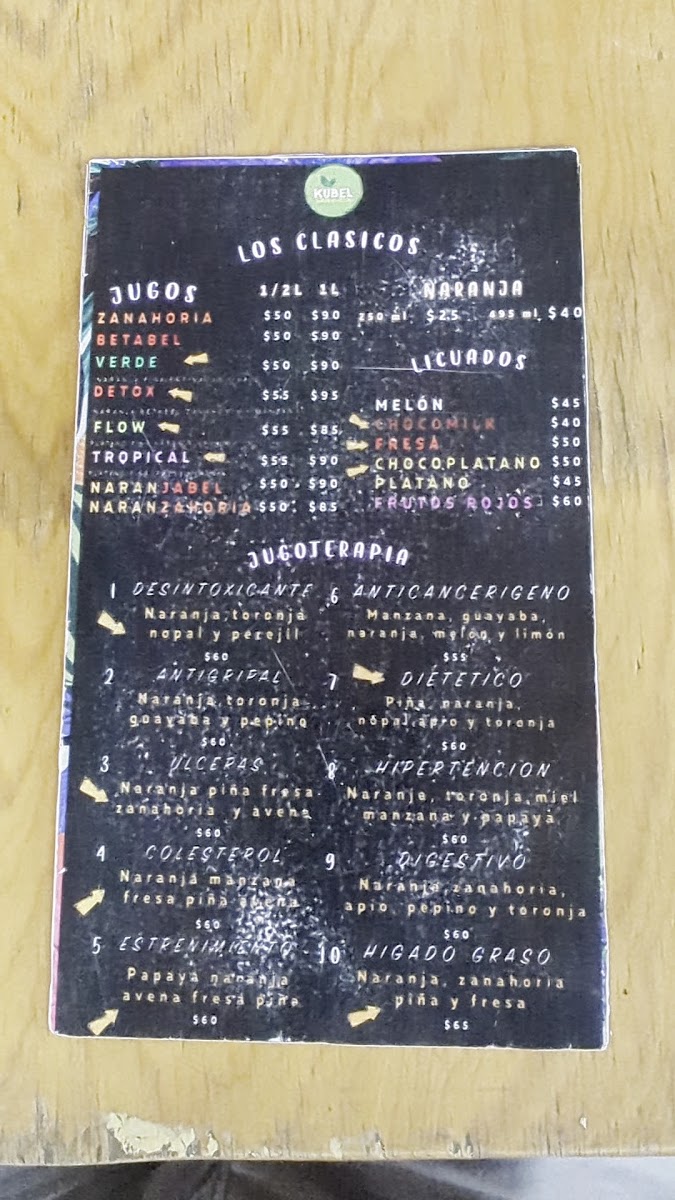 KUBEL
LOS CLASICOS
JUGOS 1/2L 1L
ZANAHORIA $50 $90
BETABEL $50 $90
VERDE $50 $90
DETOX $55 $95
FLOW $55 $85
TROPICAL $55 $90
NARANJABEL $50 $90
NARANZAHORIA $50 $85
NARANJA
250 ml $25 495 ml $40
LICUADOS
MELÓN $45
CHOCOMILK $40
FRESA $50
CHOCOPLATANO $50
PLATANO $45
FRUTOS ROJOS $60
JUGOTERAPIA
1 DESINTOXICANTE
Naranja,toronja
nopal y perejil
$60
2 ANTIGRIPAL
Naranja,toronja
guayaba y pepino
$60
3 ULCERAS
Naranja piña fresa
zanahoria y avena
$60
4 COLESTEROL
Naranja manzana
fresa piña avena
$60
5 ESTRENIMIENTO
Papaya naranja
avena fresa piña
$60
6 ANTICANCERIGENO
Manzana, guayaba,
naranja, melon y limón
$55
7 DIETETICO
Piña, naranja,
nopal,apio y toronja
$60
8 HIPERTENCION
Naranja, toronja,miel
manzana y papaya
$60
9 DIGESTIVO
Naranja,zanahoria,
apio, pepino y toronja
$60
10 HIGADO GRASO
Naranja, zanahoria
piña y fresa
$65